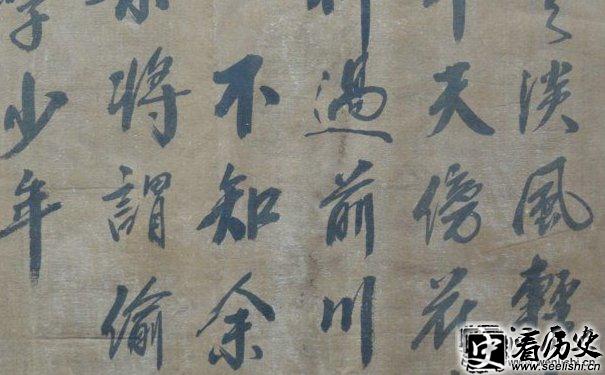 淡風輕
天傍花
過前川
不知余
將謂偷
學少年
史 看历史
www.seelishi.cn